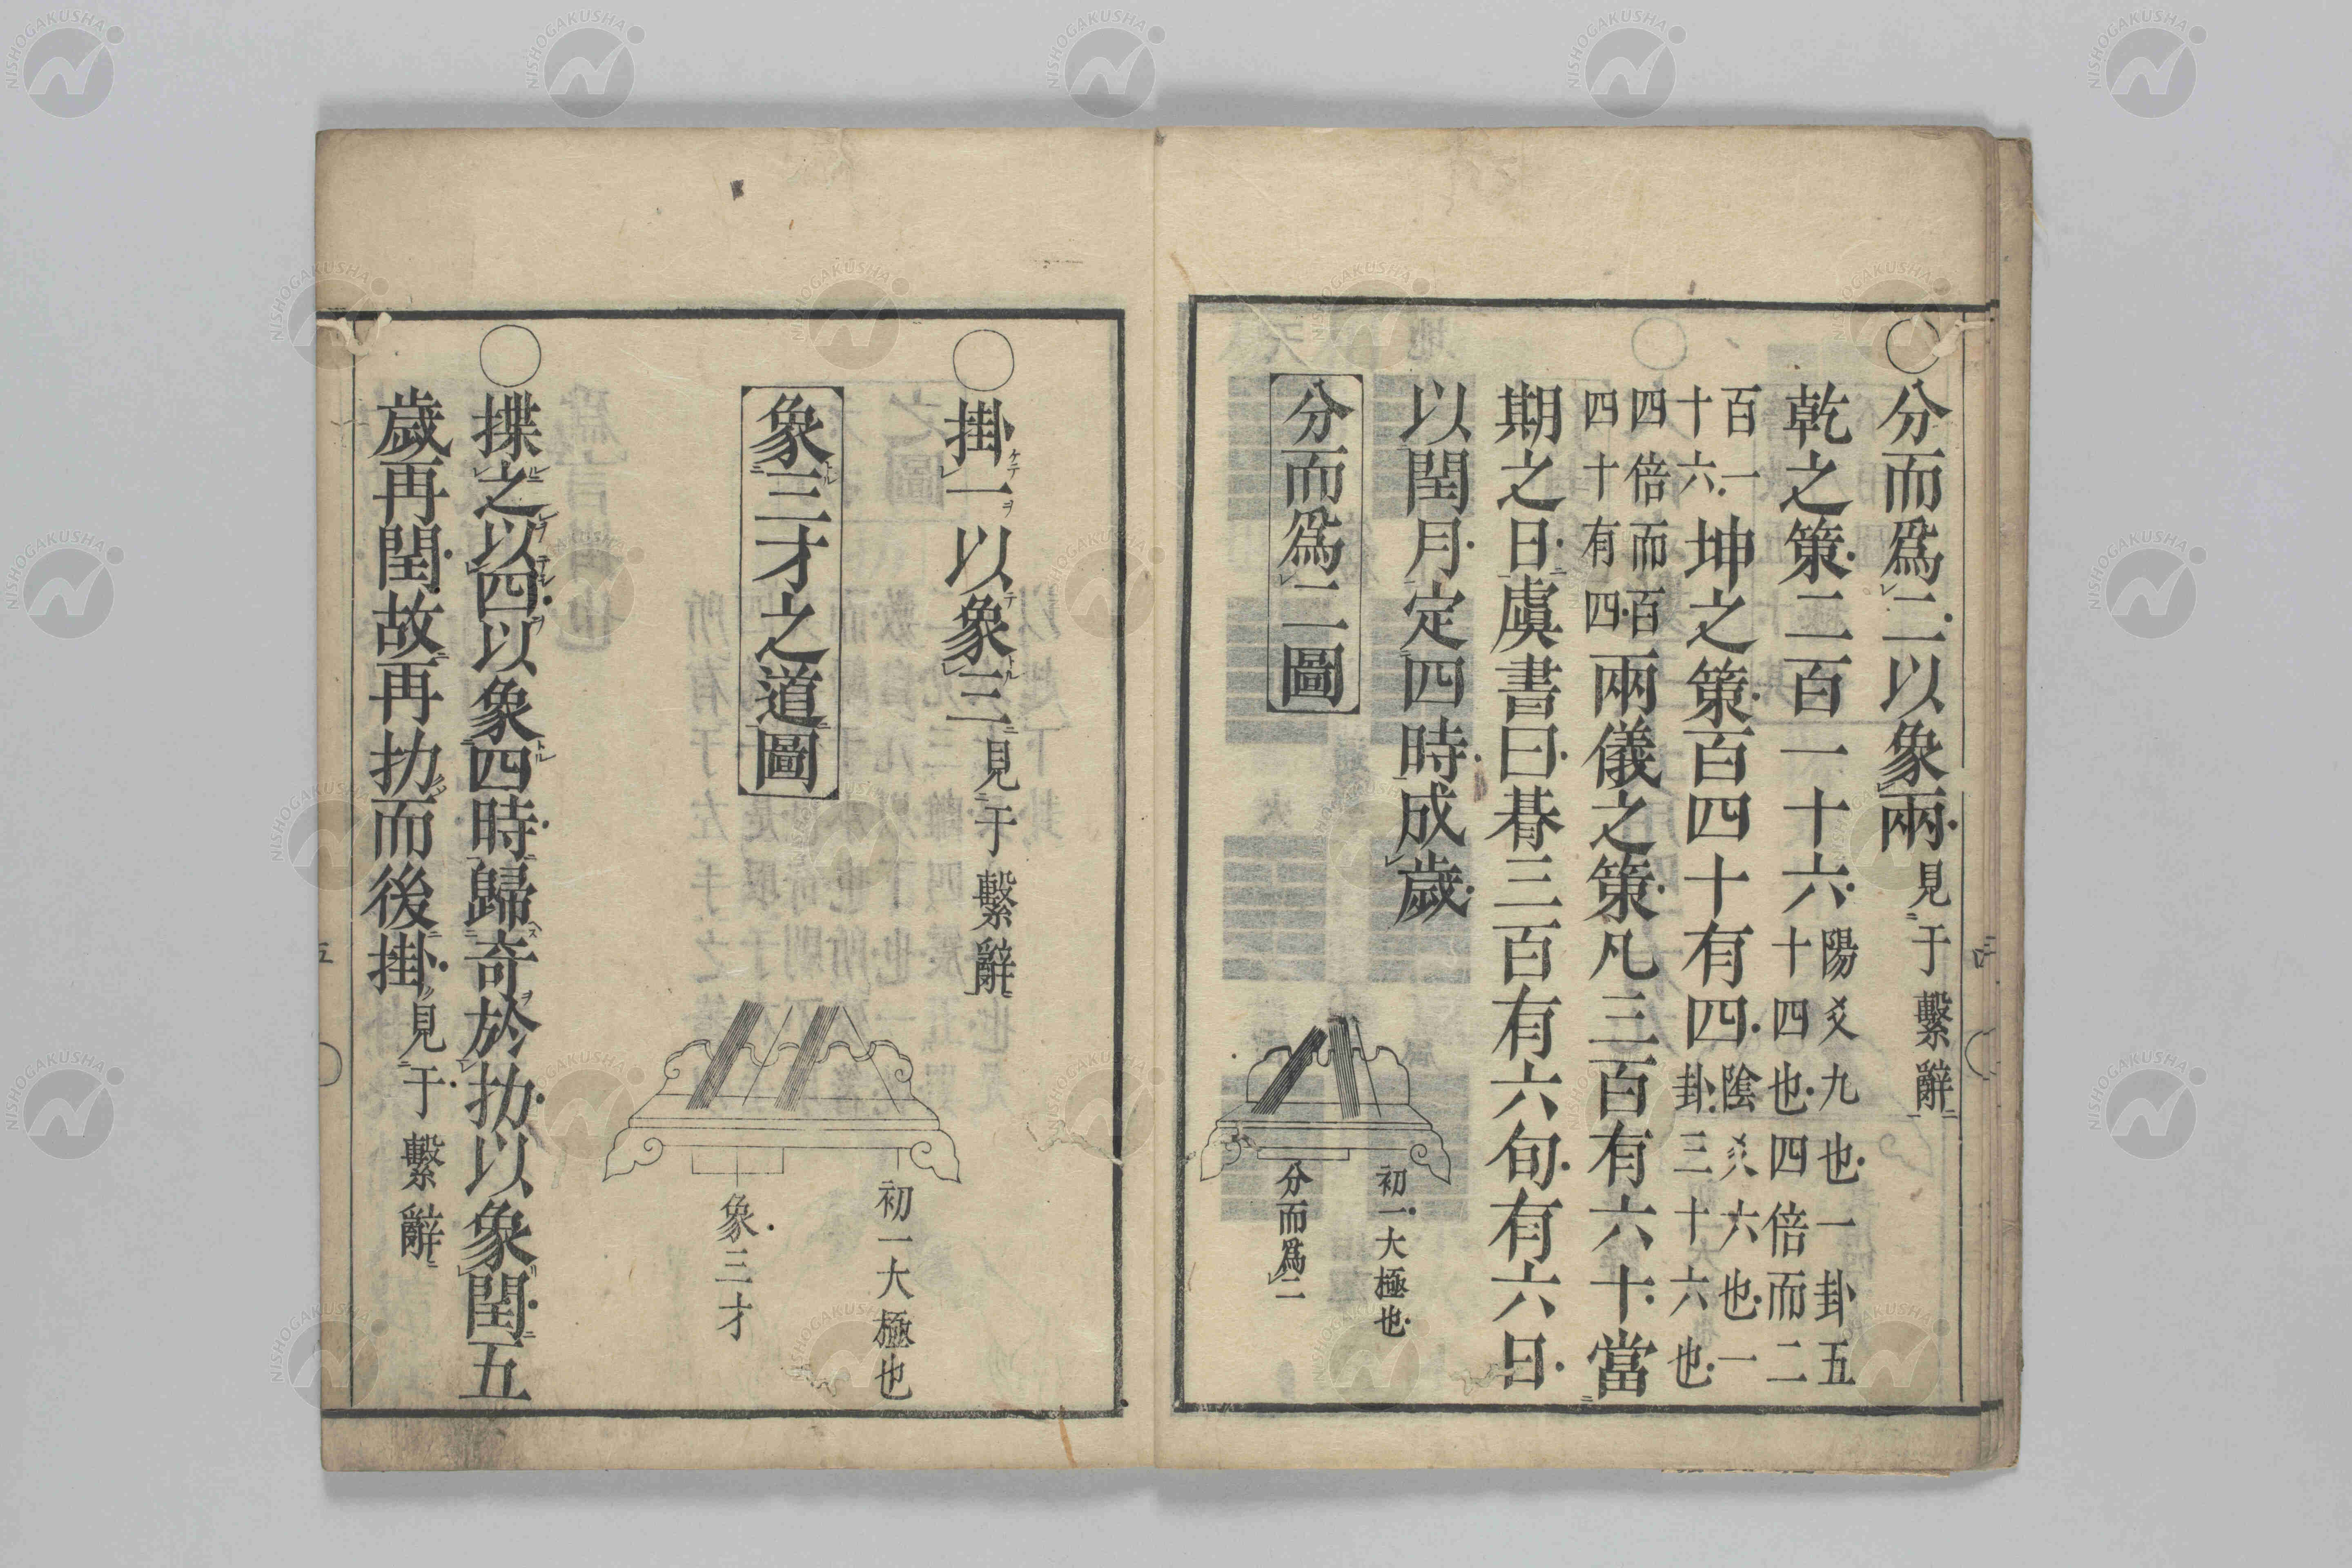 分而爲二以象兩見于繫辭
乾之策二百一十六陽爻九也一卦五十四也四倍而二
百一十六坤之策百四十有四陰爻六也一卦三十六也
四倍而百四十有四兩儀之策凡三百有六十當
期之日虞書曰朞三百有六旬有六日
以閏月定四時成歲
分而爲二圖
初一大極也
分而爲二
掛ケテ一ヲ以テ象トル三ニ見于繫辭ニ
象トル三才之道ニ圖
初一大極也
象三才
揲之以四以象四時歸奇於扐以象閏五
歲再閏故再扐而後掛見于繫辭
五
NISHOGAKUSHA